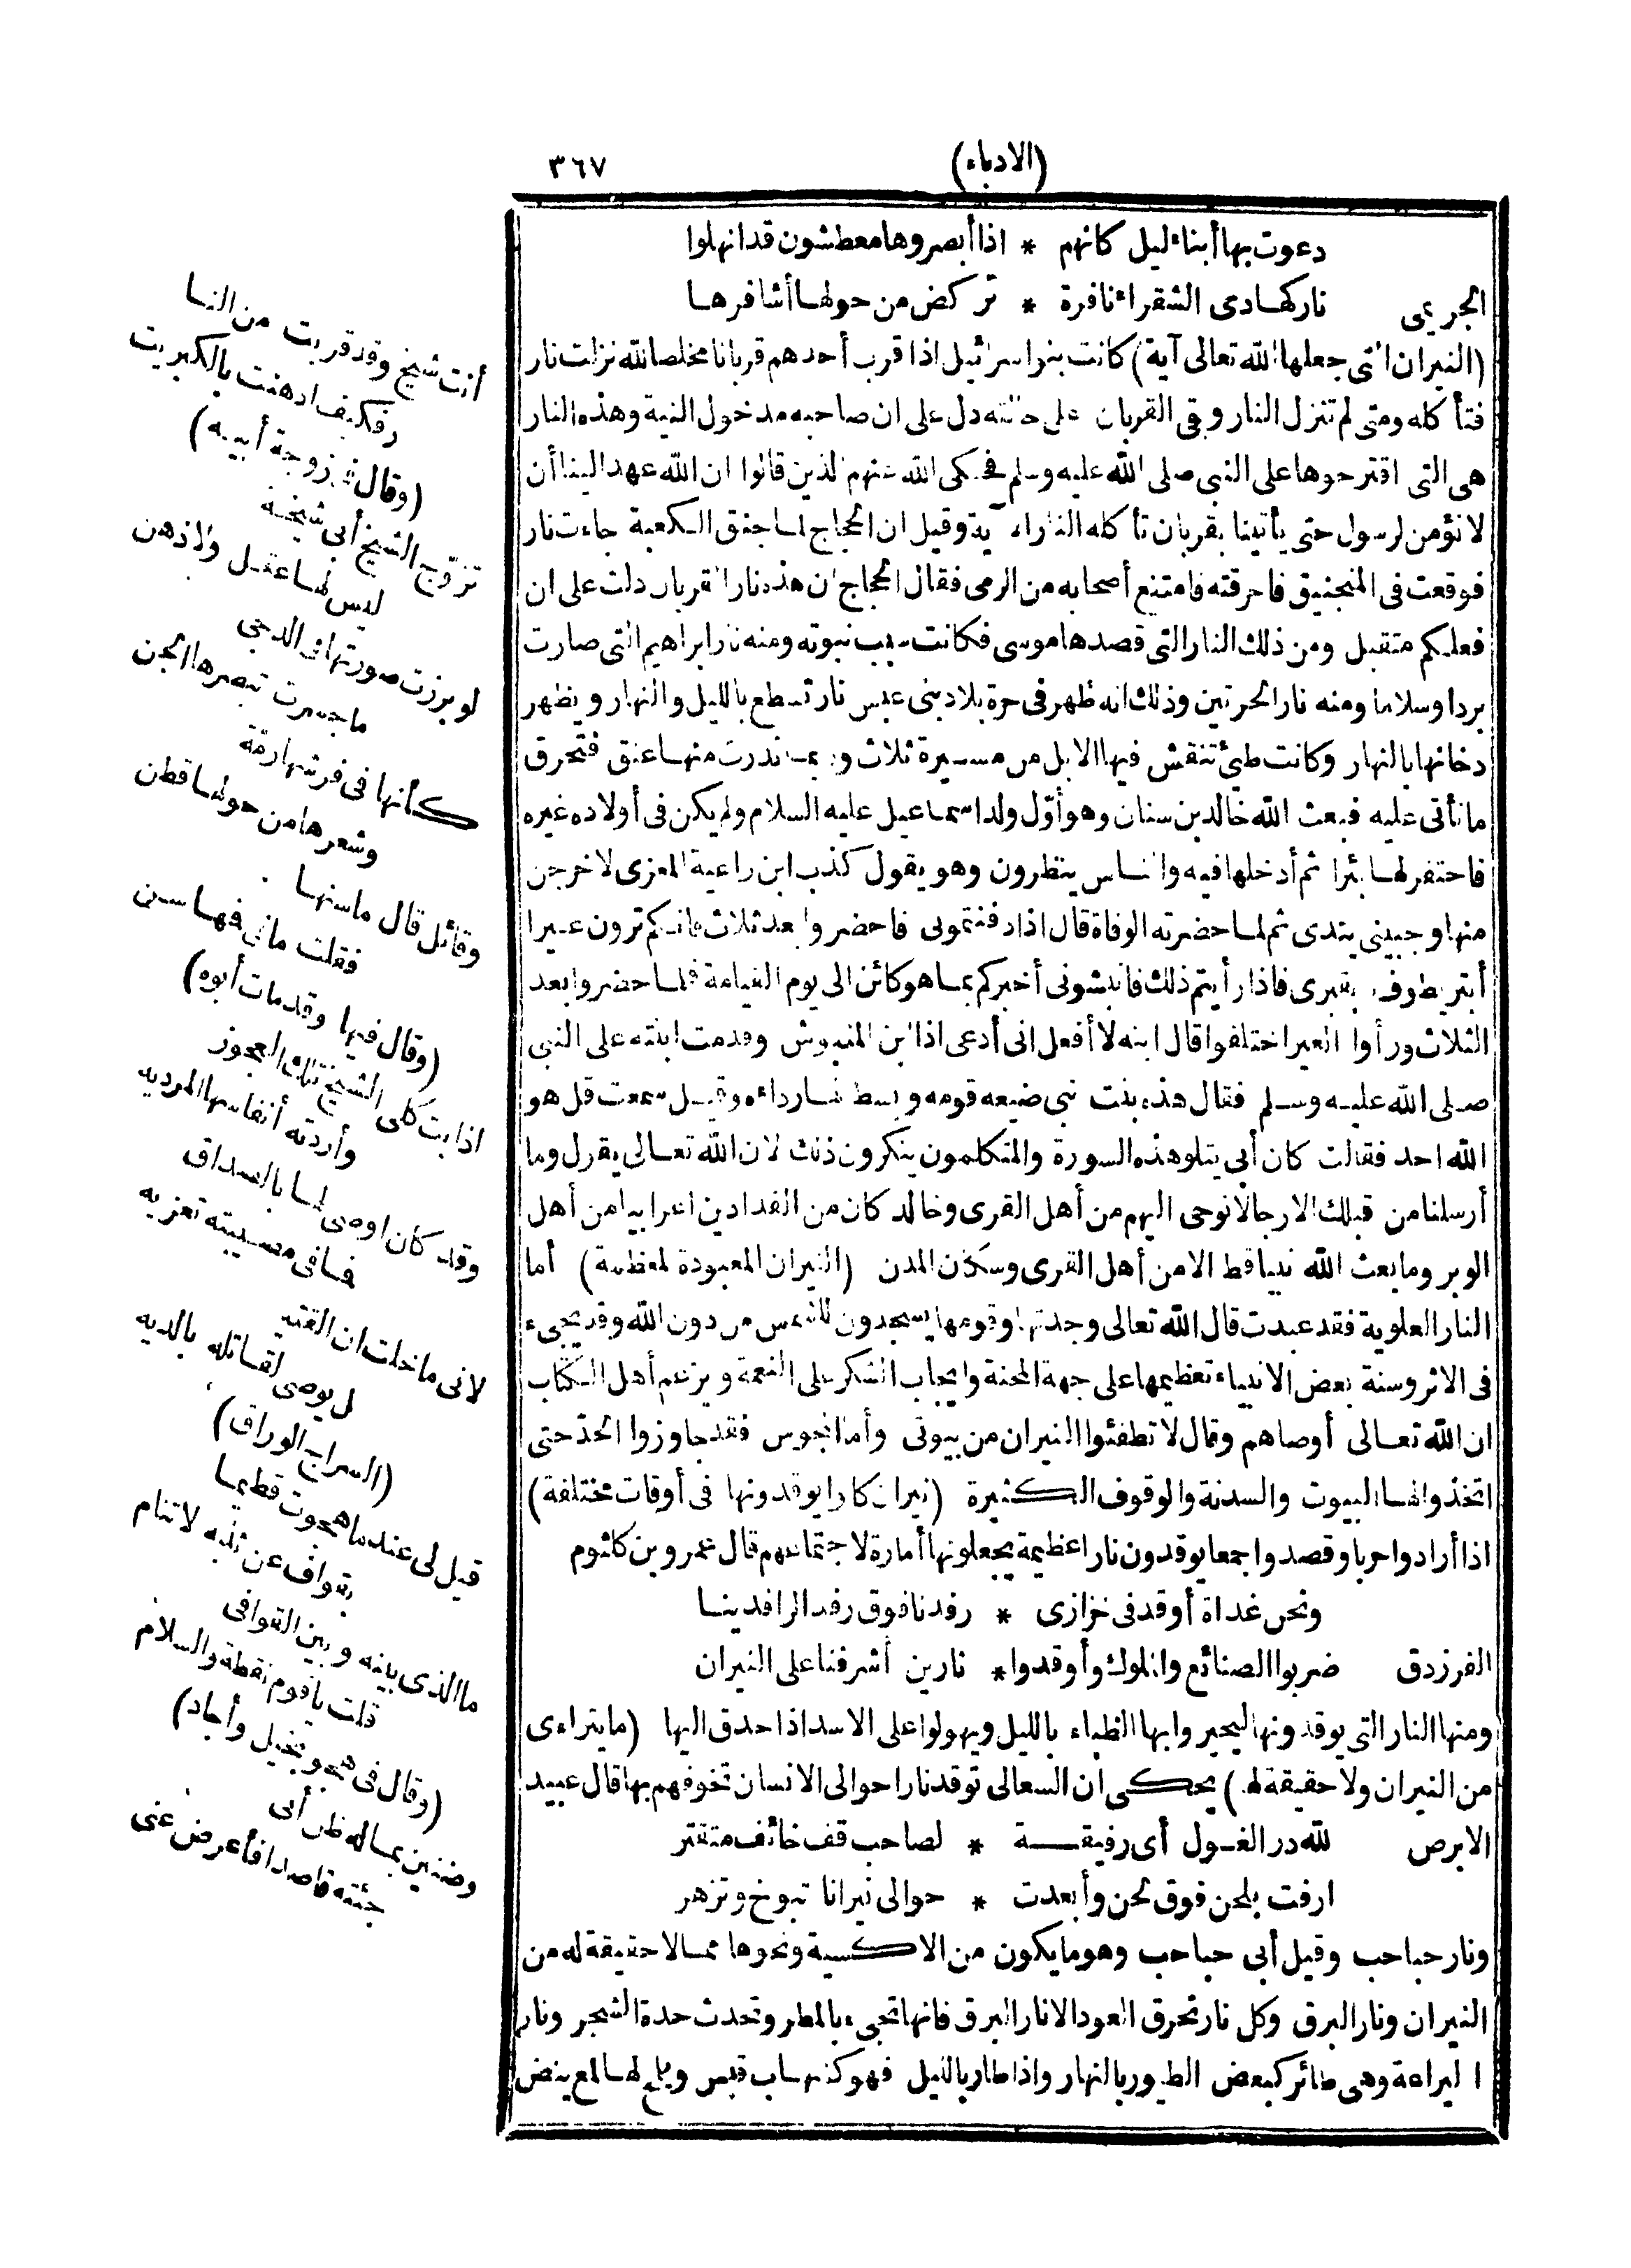 (الادباء)
٣٦٧
دعوت بها أبناء ليل كانهم * اذا أبصروها معطشون قد انهلوا
الجريمى نار كهادى الشقراء نافرة * تركض من حولها أشافرها
(النيران التى جعلها الله تعالى آية) كانت بنو اسرائيل اذا قرب أحدهم قربانا مخلصا لله نزلت نار
فتأكله ومتى لم تنزل النار وبقى القربان على حالته دل على ان صاحبه مدخول النية وهذه النار
هى التى اقترحوها على النبى صلى الله عليه وسلم فحكى الله عنهم الذين قالوا ان الله عهد الينا أن
لا نؤمن لرسول حتى يأتينا بقربان تأكله النار الآية وقيل ان الحجاج لما جنق الكعبة جاءت نار
فوقعت فى المنجنيق فاحرقته فامتنع أصحابه من الرمى فقال الحجاج ان هذه نار القربان دلت على ان
فعلكم متقبل ومن ذلك النار التى قصدها موسى فكانت سبب نبوته ومنه نار ابراهيم التى صارت
بردا وسلاما ومنه نار الحرتين وذلك انه ظهر فى حرة بلاد بنى عبس نار تسطع بالليل والنهار ويظهر
دخانها بالنهار وكانت طيئ تنفش فيها الابل من مسيرة ثلاث وربما ندرت منها عنق فتحرق
ما تأتى عليه فبعث الله خالد بن سنان وهو أوّل ولد اسماعيل عليه السلام ولم يكن فى أولاده غيره
فاحتفر لها بئرا ثم أدخلها فيه والناس ينظرون وهو يقول كذب ابن راعية المعزى لاخرجن
منها وجبينى يندى ثم لما حضرته الوفاة قال اذا دفنتمونى فاحضروا بعد ثلاث فانكم ترون عيرا
أبتر يطوف بقبرى فاذا رأيتم ذلك فانبشونى أخبركم بما هو كائن الى يوم القيامة فلما حضروا بعد
الثلاث ورأوا العير اختلفوا قال ابنه لا أفعل انى أدعى اذا ابن المنبوش وقدمت ابنته على النبى
صلى الله عليه وسلم فقال هذه بنت نبى ضيعه قومه وبسط لها رداءه وقيل سمعت قل هو
الله احد فقالت كان أبى يتلو هذه السورة والمتكلمون ينكرون ذلك لان الله تعالى يقول وما
أرسلنا من قبلك الا رجالا نوحى اليهم من أهل القرى وخالد كان من الفدادين اعرابيا من أهل
الوبر وما بعث الله نبيا قط الا من أهل القرى وسكان المدن (النيران المعبودة المعظمة) أما
النار العلوية فقد عبدت قال الله تعالى وجدتها وقومها يسجدون للشمس من دون الله وقد يجىء
فى الاثر وسنة بعض الانبياء تعظيمها على جهة المحنة وايجاب الشكر على النعمة ويزعم أهل الكتاب
ان الله تعالى أوصاهم وقال لا تطفئوا النيران من بيوتى وأما المجوس فقد جاوزوا الحدّ حتى
اتخذوا لها البيوت والسدنة والوقوف الكثيرة (نيران كانوا يوقدونها فى أوقات مختلفة)
اذا أرادوا حربا وقصدوا جمعا يوقدون نارا عظيمة يجعلونها أمارة لاجتماعهم قال عمرو بن كلثوم
ونحن غداة أوقد فى خزازى * رفدنا فوق رفد الرافدينا
الفرزدق ضربوا الصنائع والملوك وأوقدوا * نارين أشرفنا على النيران
ومنها النار التى يوقدونها ليحيروا بها الظباء بالليل ويهولوا على الاسد اذا حدق اليها (ما يتراءى
من النيران ولا حقيقة له) يحكى ان السعالى توقد نارا حوالى الانسان تخوفهم بها قال عبيد
الابرص لله در الغول أى رفيقة * لصاحب قف خائف متقتر
ارفت بلحن فوق لحن وأبعدت * حوالى نيرانا تبوخ وتزهر
ونار حباحب وقيل أبى حباحب وهو ما يكون من الاكسية ونحوها مما لا حقيقة له من
النيران ونار البرق وكل نار تحرق العود الا نار البرق فانها تجىء بالمطر وتحدث حدة الشجر ونار
اليراعة وهى طائر كبعض الطيور بالنهار واذا طار بالليل فهو كشهاب قبس ويلمع لها لمع ينض
أنت شيخ وقد قربت من النا
ر فكيف ادهنت بالكبريت
(وقال فى زوجة أبيه)
تزوّج الشيخ أبى شيخة
ليس لها عقل ولا ذهن
لو برزت صورتها فى الدجى
ما جسرت تبصرها الجن
كأنها فى فرشها رمة
وشعرها من حولها قطن
وقائل قال ما سنها
فقلت ما فى فها سن
(وقال فيها وقد مات أبوه)
اذابت كلى الشيخ تلك العجوز
وأردته أنفاسها المرديه
وقد كان اوصى لها بالصداق
فما فى مصيبته تعزيه
لانى ما خلت ان القتيـ
ل يوصى لقاتله بالديه
(السراج الوراق)
قيل لى عندما هجوت قطيما
بقواف عن ثلبه لا تنام
ما الذى بينه وبين القوافى
قلت يا قوم نقطة والسلام
(وقال فى هجو بخيل وأجاد)
وضنين بماله ظن أنى
جئته قاصدا فأعرض عنى